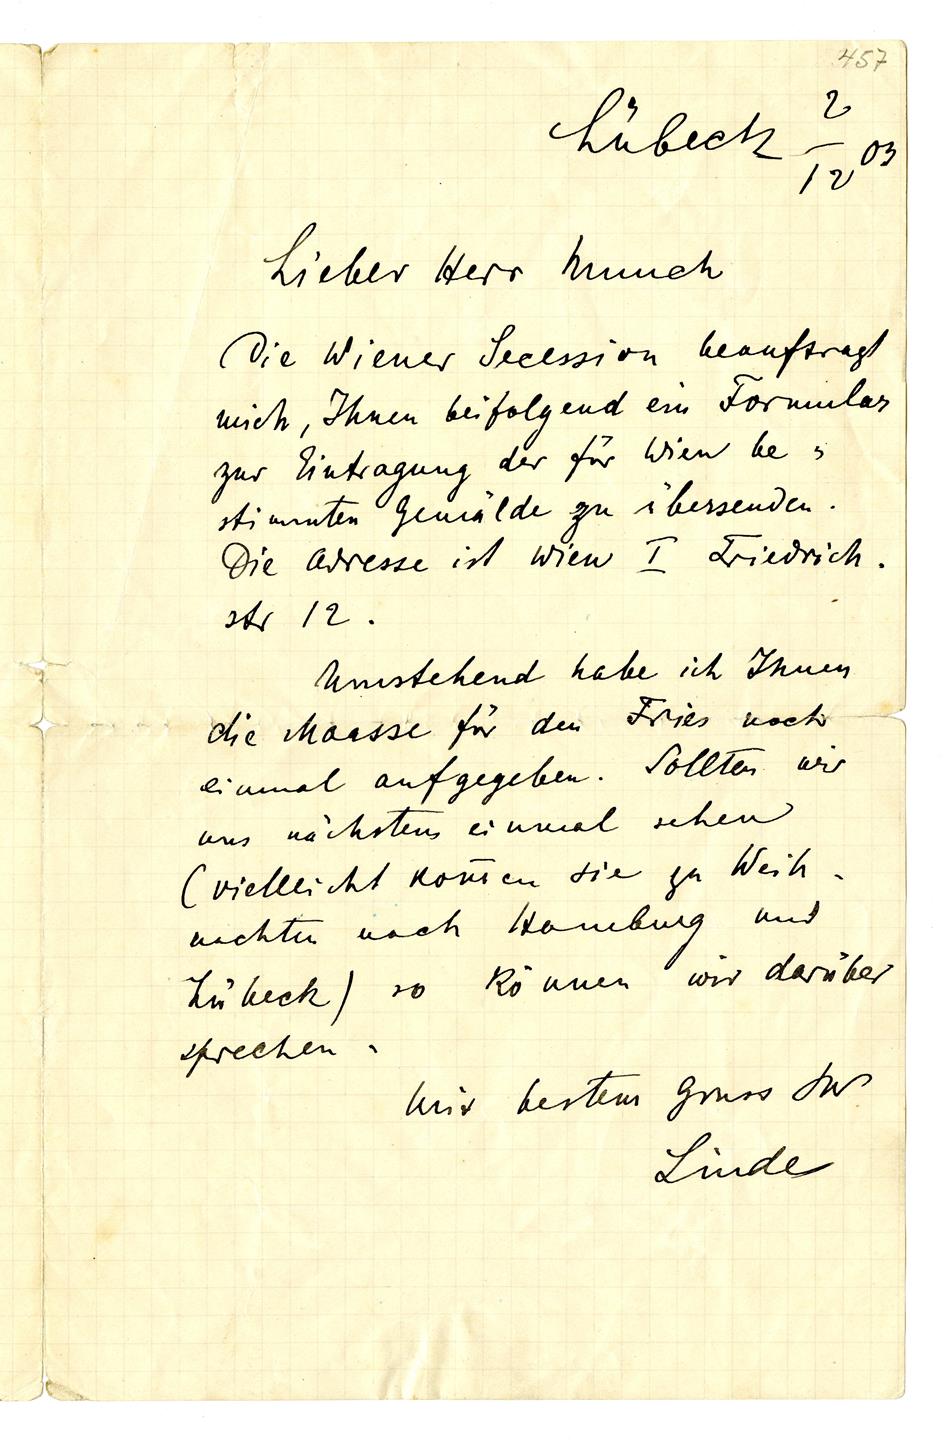 457
Lübeck 2/12 03
Lieber Herr Munch
Die Wiener Secession beauftragt
mich, Ihnen beifolgend ein Formular
zur Eintragung der für Wien be-
stimmten Gemälde zu übersenden.
Die Adresse ist Wien I Friedrich.
str 12.
Umstehend habe ich Ihnen
die Maasse für den Fries noch
einmal aufgegeben. Sollten wir
uns nächstens einmal sehen
(vielleicht kom̅en sie zu Weih-
nachten nach Hamburg und
Lübeck) so können wir darüber
sprechen.
Mit bestem Gruss Ihr
Linde